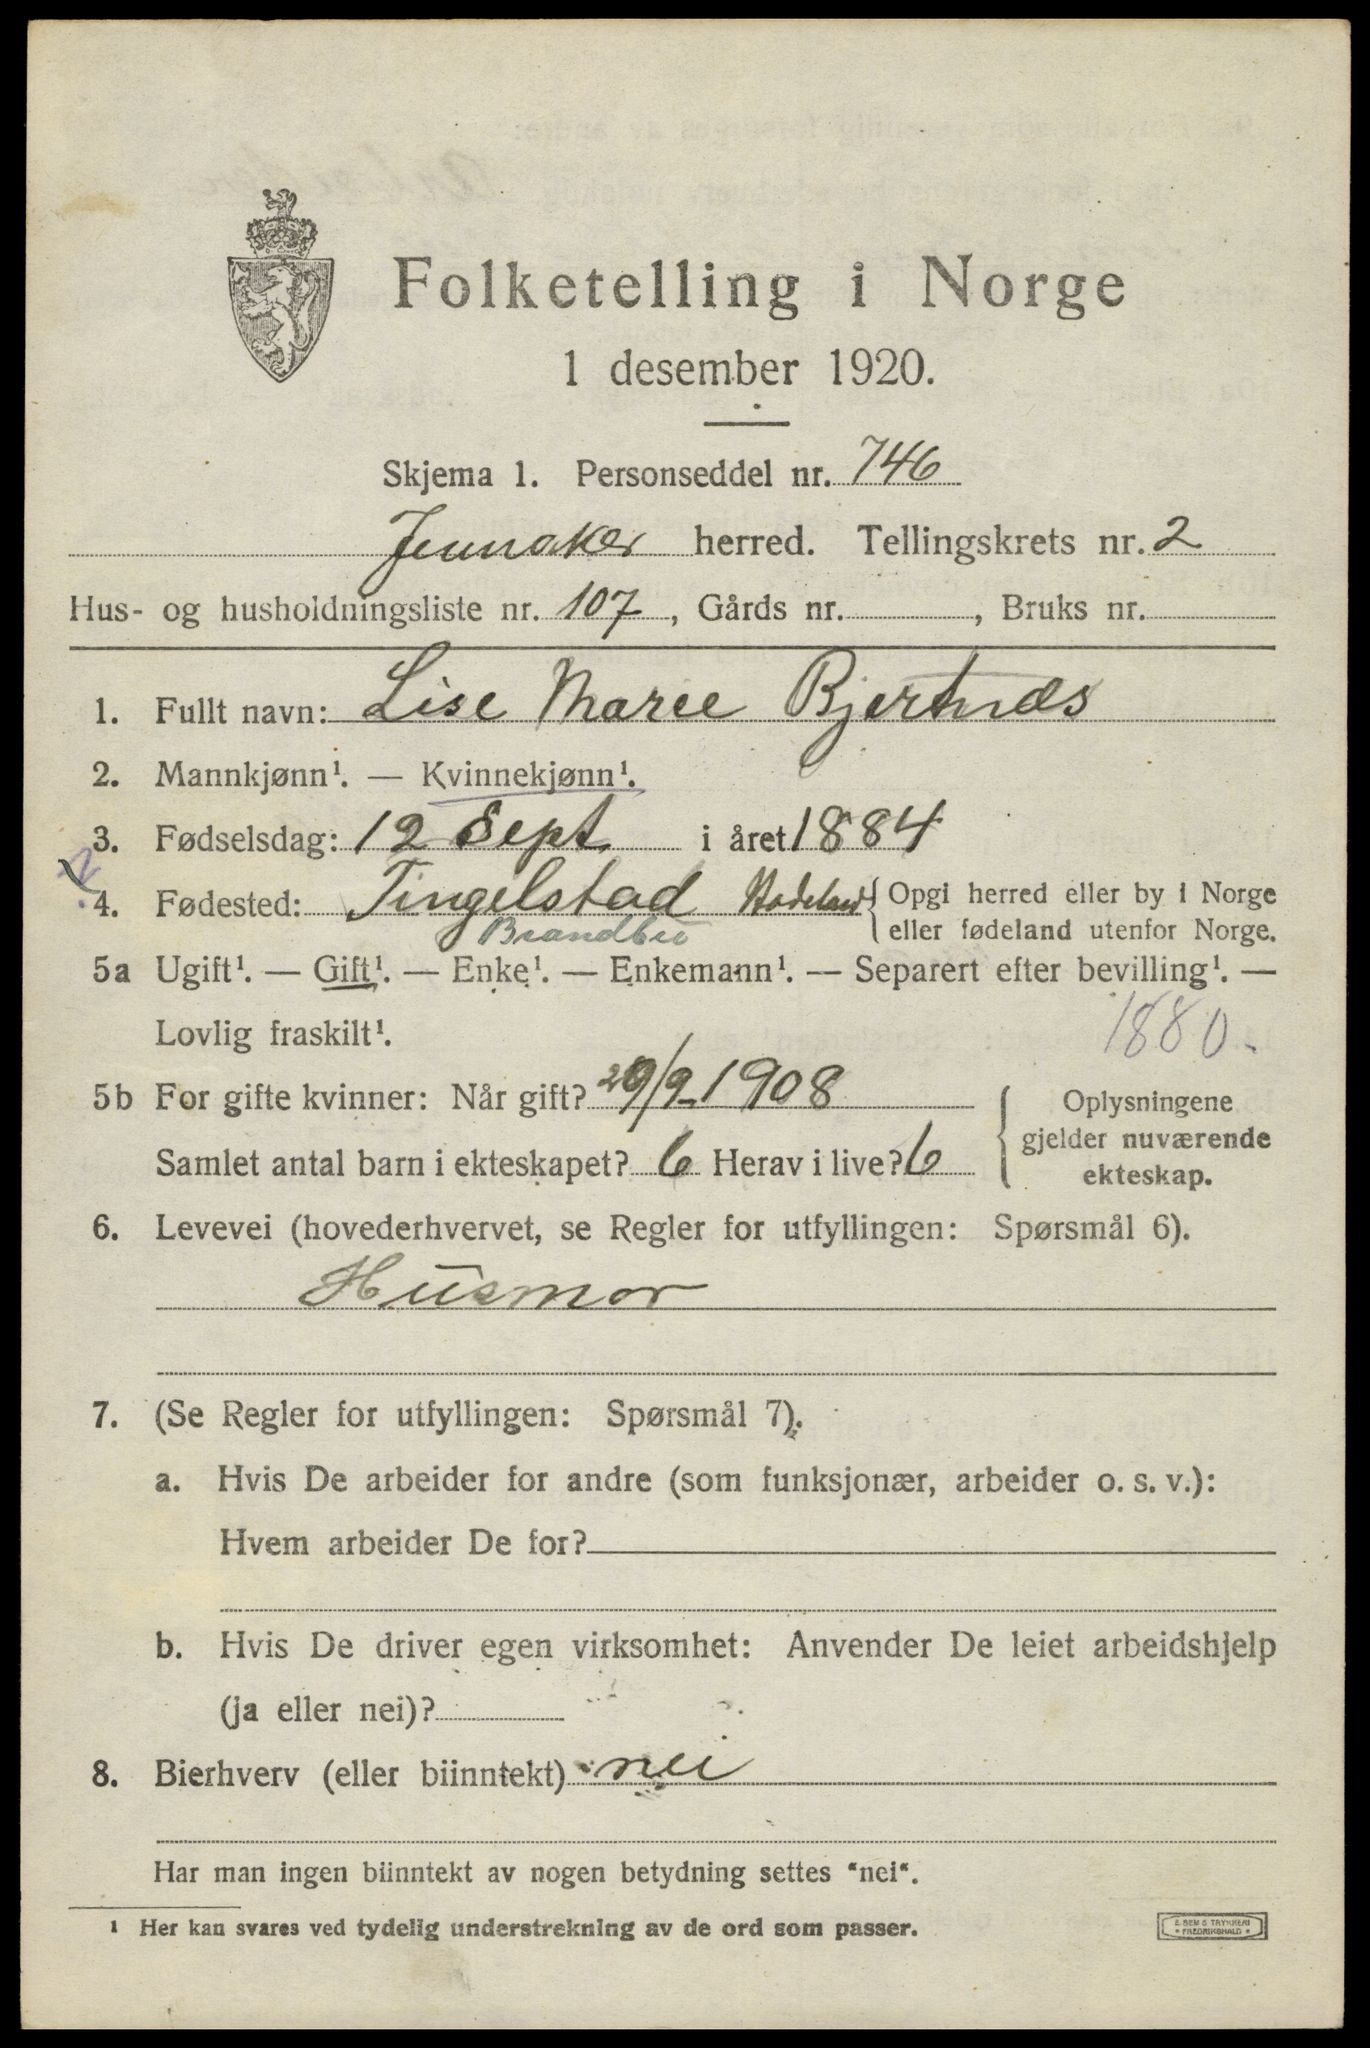 Folketelling i Norge
1 desember 1920.
Skjema 1. Personseddel nr. 746
Jevnaker herred. Tellingskrets nr. 2
Hus- og husholdningsliste nr. 107, Gårds nr. , Bruks nr.
1. Fullt navn: Lise Marie Bjertnæs
2. Mannkjønn¹. — Kvinnekjønn¹.
3. Fødselsdag: 12 Sept. i året 1884
4. Fødested: Tingelstad Hadeland { Opgi herred eller by i Norge
eller fødeland utenfor Norge.
Brandbu
5a Ugift¹. — Gift¹. — Enke¹. — Enkemann¹. — Separert efter bevilling¹. —
Lovlig fraskilt¹. 1880.
5b For gifte kvinner: Når gift? 29/9-1908
Samlet antal barn i ekteskapet? 6 Herav i live? 6
Oplysningene
gjelder nuværende
ekteskap.
6. Levevei (hovederhvervet, se Regler for utfyllingen: Spørsmål 6).
Husmor
7. (Se Regler for utfyllingen: Spørsmål 7).
a. Hvis De arbeider for andre (som funksjonær, arbeider o. s. v.):
Hvem arbeider De for?
b. Hvis De driver egen virksomhet: Anvender De leiet arbeidshjelp
(ja eller nei)?
8. Bierhverv (eller biinntekt) nei
Har man ingen biinntekt av nogen betydning settes "nei".
¹ Her kan svares ved tydelig understrekning av de ord som passer.
E. SEM S TRYKKERI
* FREDRIKSHALD *